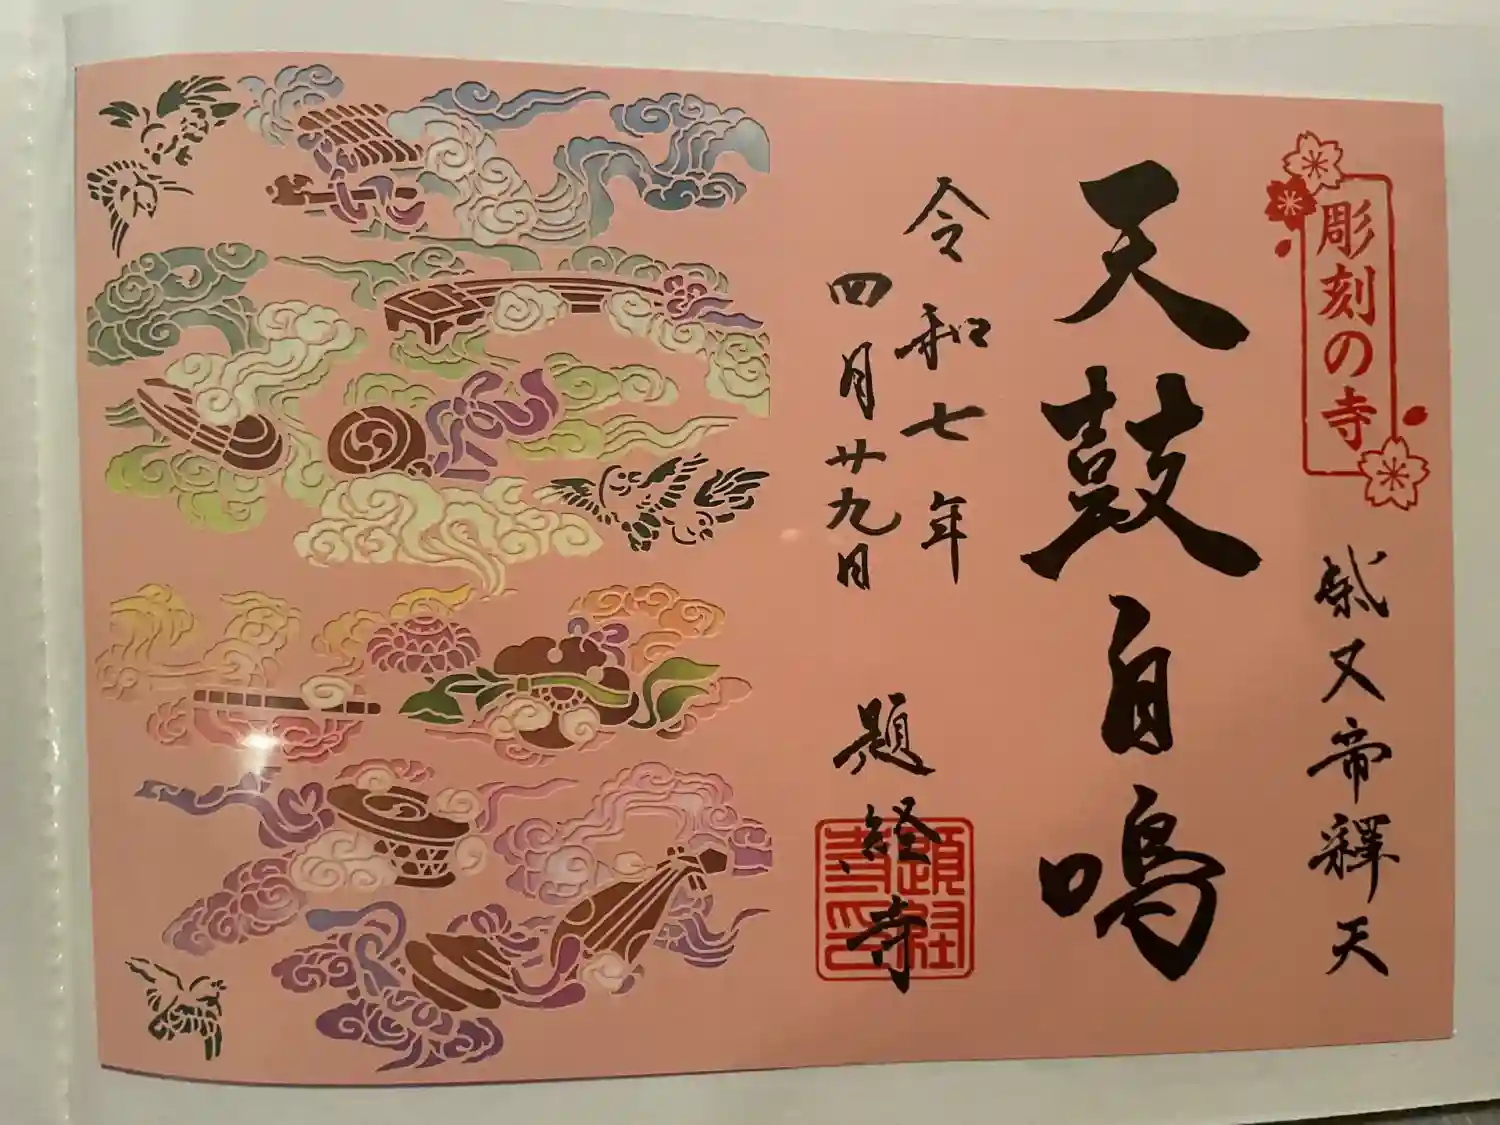 彫刻の寺
柴又帝釋天
天鼓自鳴
令和七年
四月廿九日
題経寺
題経寺印